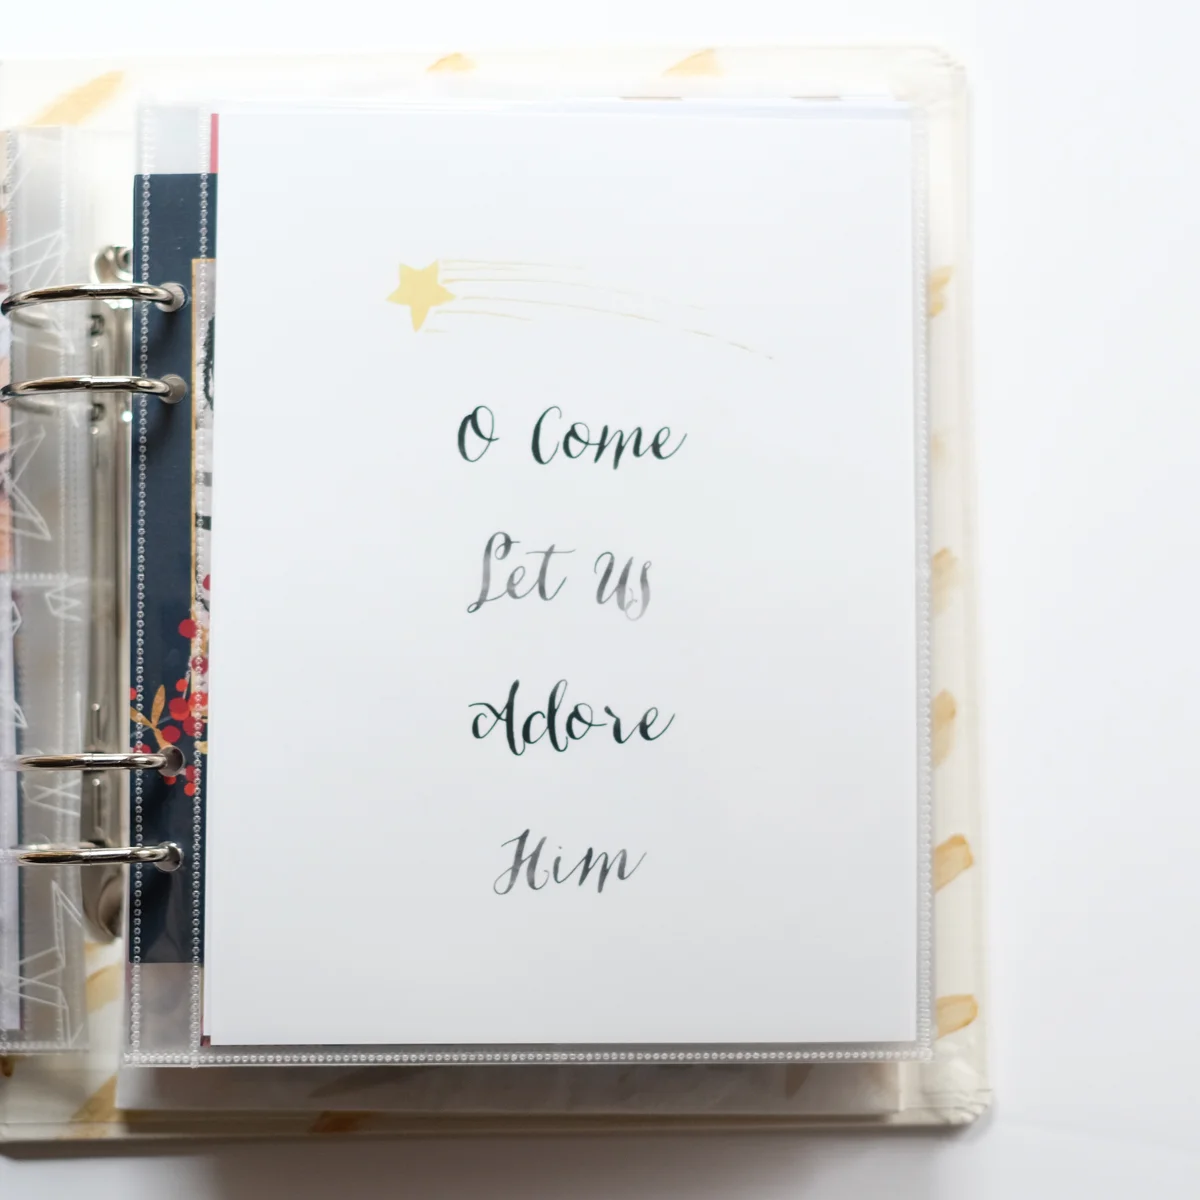 O Come
Let Us
Adore
Him